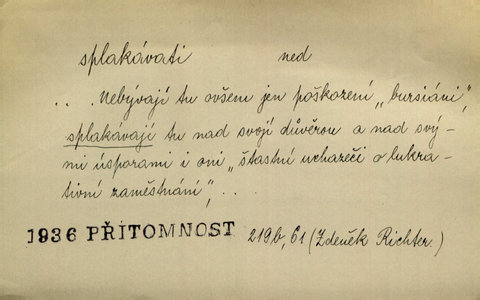 splakávati ned
. . .Nebývají tu ovšem jen poškození „bursiáni",
splakávají tu nad svojí důvěrou a nad svý-
mi úsporami i oni „šťastní uchazeči o lukra-
tivní zaměstnání", . .
1936 PŘÍTOMNOST 219b, 61 (Zdeněk Richter.)